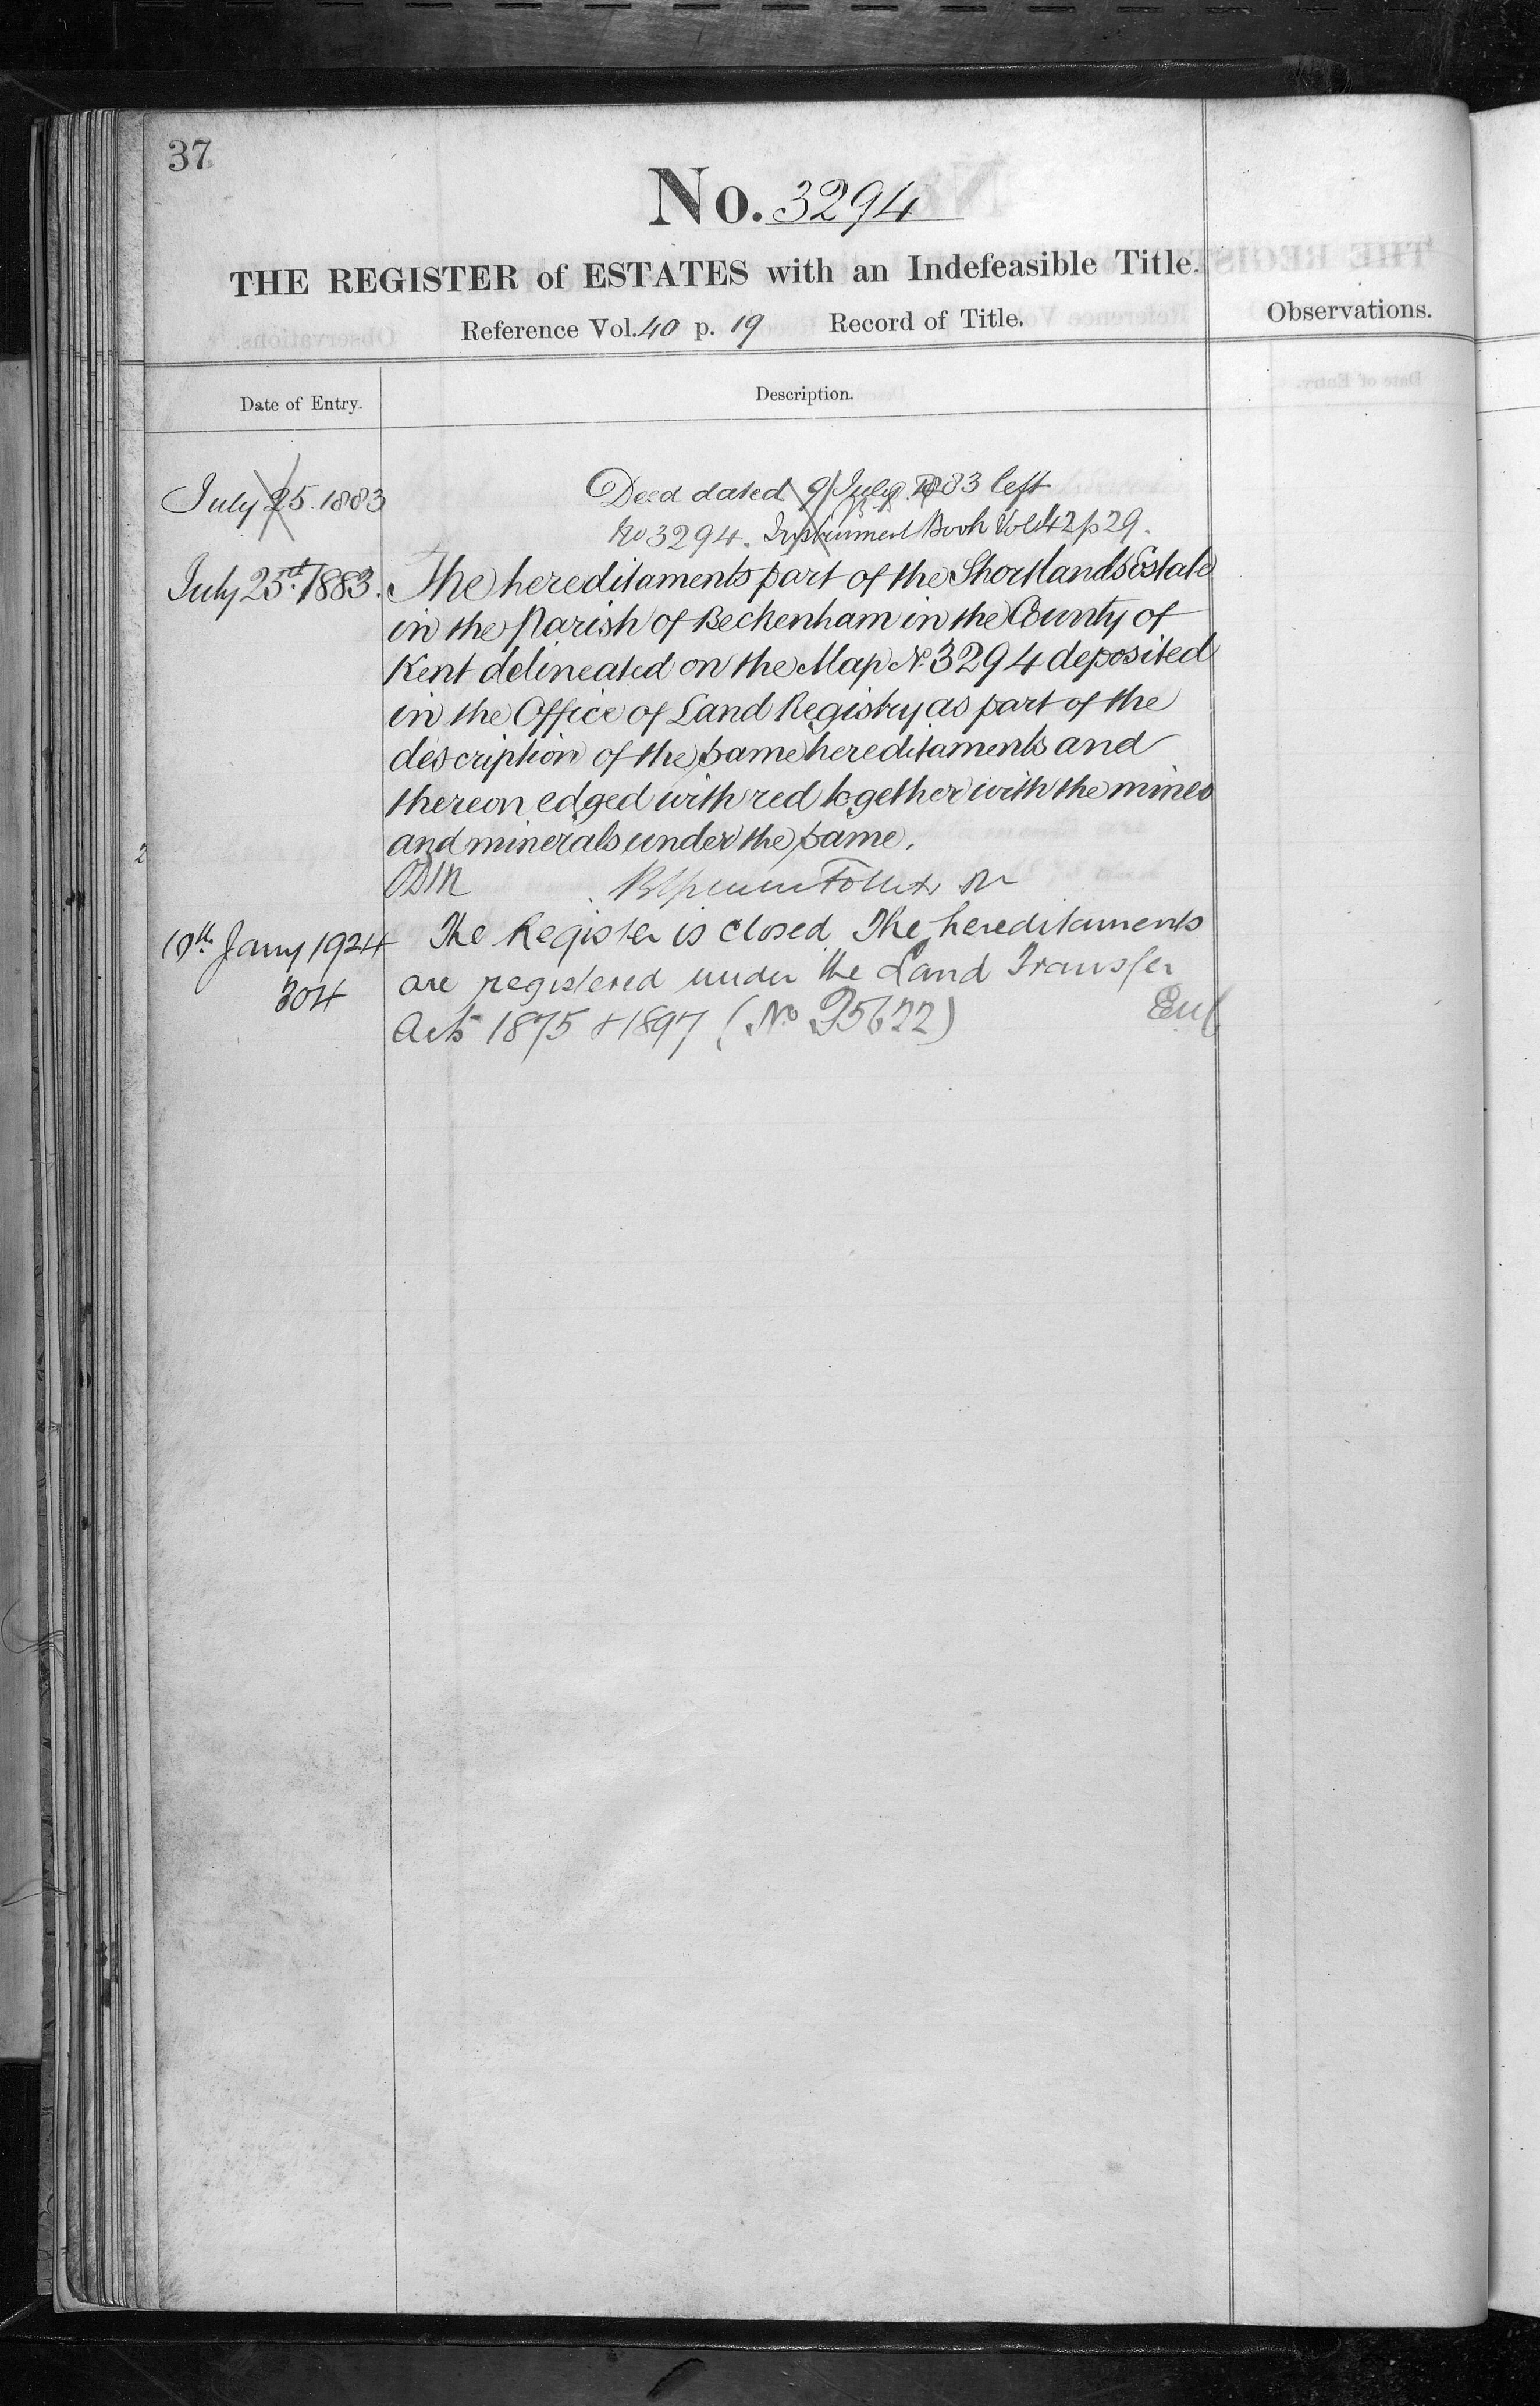 37
No. 3294
THE REGISTER of ESTATES with an Indefeasible Title.
Reference Vol. 40 p. 19 Record of Title.
Observations.
Date of Entry.
Description.
July 25. 1883
Deed dated 9 July 1883 left
No 3294. Instrument Book Vol 42 p 29.
July 25th 1883. The hereditaments part of the Shortlands Estate
in the Parish of Beckenham in the County of
Kent delineated on the Map No. 3294 deposited
in the Office of Land Registry as part of the
description of the same hereditaments and
thereon edged with red together with the mines
and minerals under the same.
2
10th Jany 1924 The Register is closed. The hereditaments
304 are registered under the Land Transfer
Acts 1875 & 1897 (No